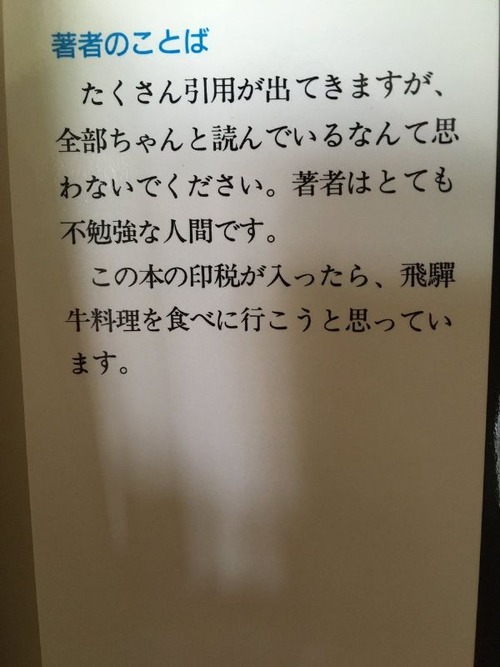 著者のことば
たくさん引用が出てきますが、
全部ちゃんと読んでいるなんて思
わないでください。著者はとても
不勉強な人間です。
この本の印税が入ったら、飛驒
牛料理を食べに行こうと思ってい
ます。